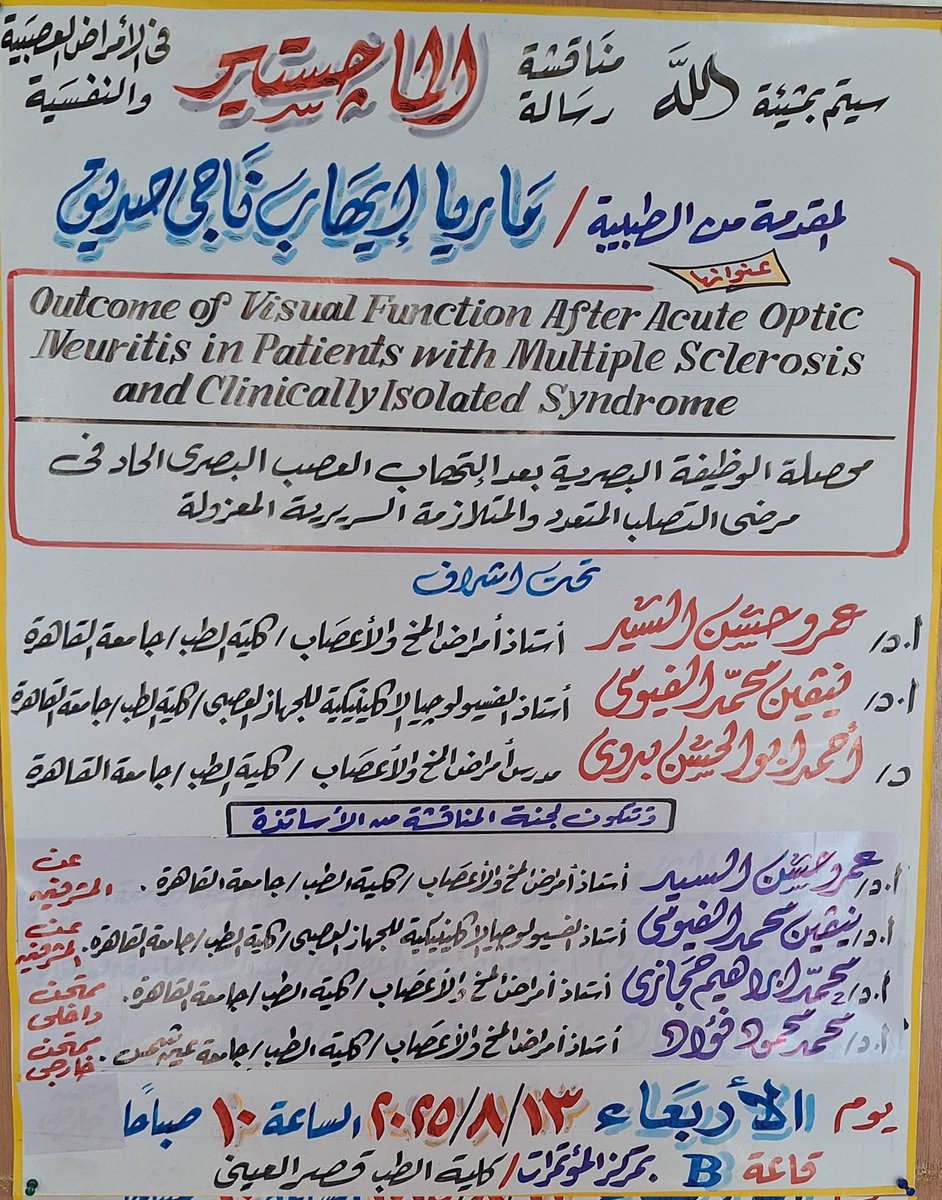 سيتم بمشيئة الله مناقشة رسالة الماجستير في الأمراض العصبية والنفسية
المقدمة من الطبيبة / ماريا إيهاب ناجى صديق
عنوانها
Outcome of Visual Function After Acute Optic
Neuritis in Patients with Multiple Sclerosis
and Clinically Isolated Syndrome
محصلة الوظيفة البصرية بعد إلتهاب العصب البصرى الحاد فى
مرضى التصلب المتعدد والمتلازمة السريرية المعزولة
تحت اشراف
أ.د/ عمرو حسن السيد أستاذ أمراض المخ والأعصاب / كلية الطب / جامعة القاهرة
أ.د/ نيفين محمد الفيومى أستاذ الفسيولوجيا الإكلينيكية للجهاز العصبى / كلية الطب / جامعة القاهرة
د/ أحمد ابو الحسن بدوى مدرس أمراض المخ والأعصاب / كلية الطب / جامعة القاهرة
وتتكون لجنة المناقشة من الأساتذة
أ.د/ عمرو حسن السيد أستاذ أمراض المخ والأعصاب / كلية الطب / جامعة القاهرة . عن المشرفين
أ.د/ نيفين محمد الفيومى أستاذ الفسيولوجيا الإكلينيكية للجهاز العصبى / كلية الطب / جامعة القاهرة . عن المشرفين
أ.د/ محمد ابراهيم حجازى أستاذ أمراض المخ والأعصاب / كلية الطب / جامعة القاهرة . ممتحن داخلى
أ.د/ محمد محمود فؤاد أستاذ أمراض المخ والأعصاب / كلية الطب / جامعة عين شمس . ممتحن خارجى
يوم الأربعاء ٢٠٢٥/٨/١٣ الساعة ١٠ صباحًا
قاعة B بمركز المؤتمرات / كلية الطب قصر العينى